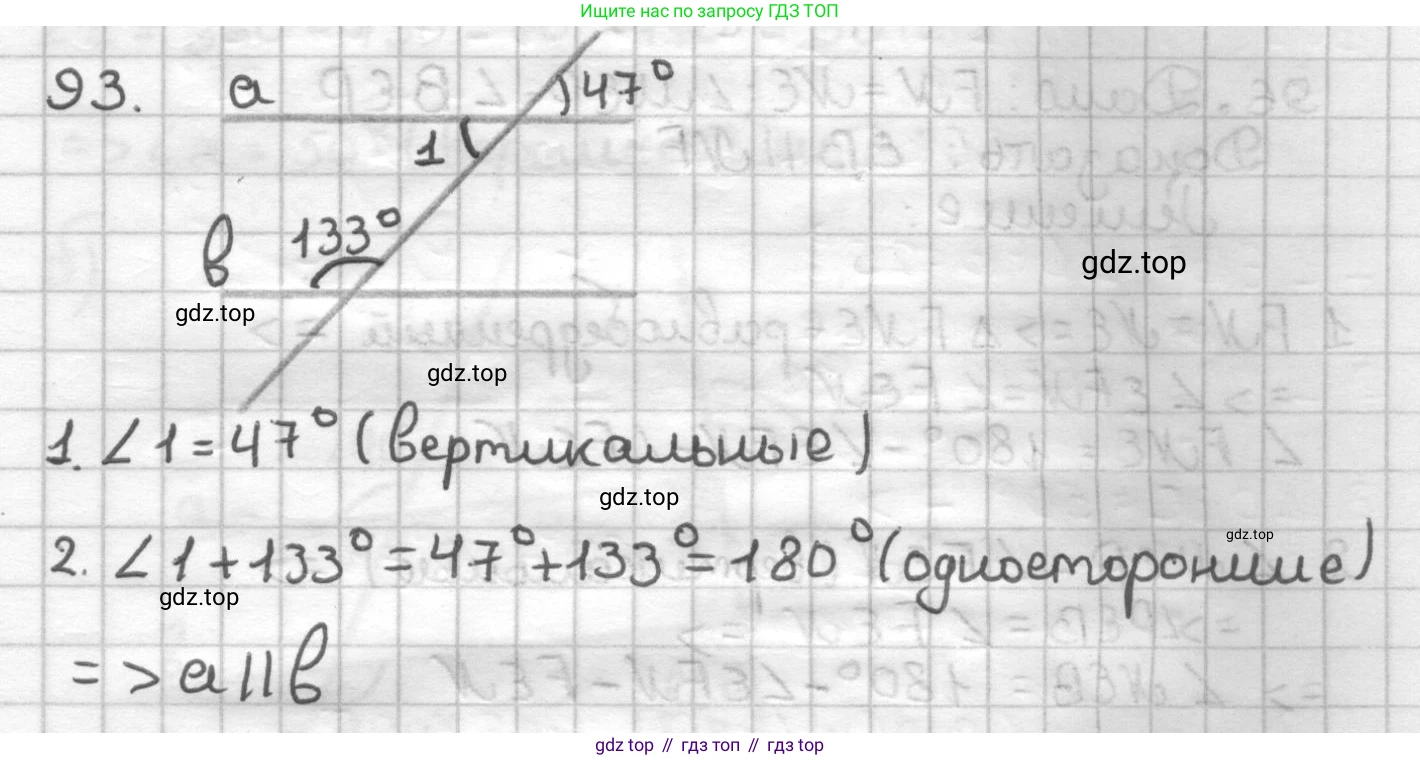 Ищите нас по запросу ГДЗ ТОП
93. a 47°
1
в 133°
gdz.top
gdz.top
gdz.top
1. ∠1 = 47° (вертикальные)
gdz.top
2. ∠1 + 133° = 47° + 133° = 180° (односторонние)
gdz.top
gdz.top
=> a || в
gdz top // гдз топ // гдз top